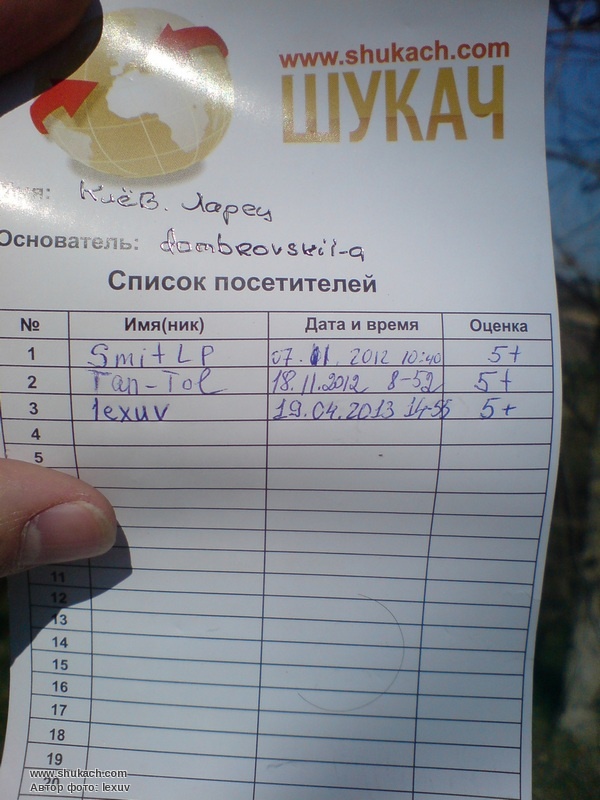 www.shukach.com
ШУКАЧ
Клёв. Ларец
Основатель: dombrovskii-a
Список посетителей
№ Имя(ник) Дата и время Оценка
1 SmitLP 07.11.2012 10:40 5+
2 Tan-Tol 18.11.2012 8-52 5+
3 lexuv 19.04.2013 14-55 5+
4
5
11
12
13
14
15
16
17
18
19
20
www.shukach.com
Автор фото: lexuv